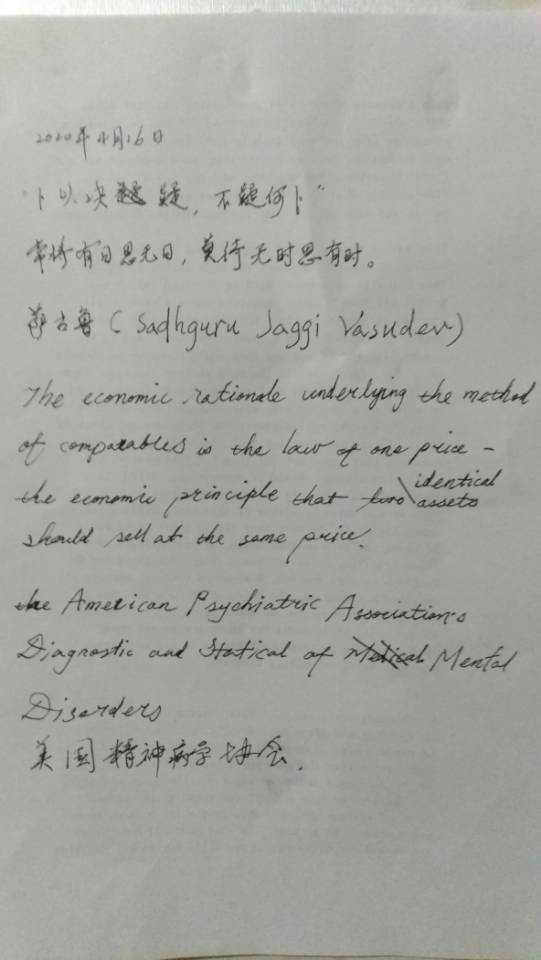 2020年4月16日
"卜以决疑，不疑何卜"
常将有日思无日，莫待无时思有时。
萨古鲁(Sadhguru Jaggi Vasudev)
The economic rationale underlying the method
of comparables is the law of one price -
the economic principle that two \ identical assets
should sell at the same price.
the American Psychiatric Association's
Diagnostic and Statical of Medical Mental
Disorders
美国精神病学协会.